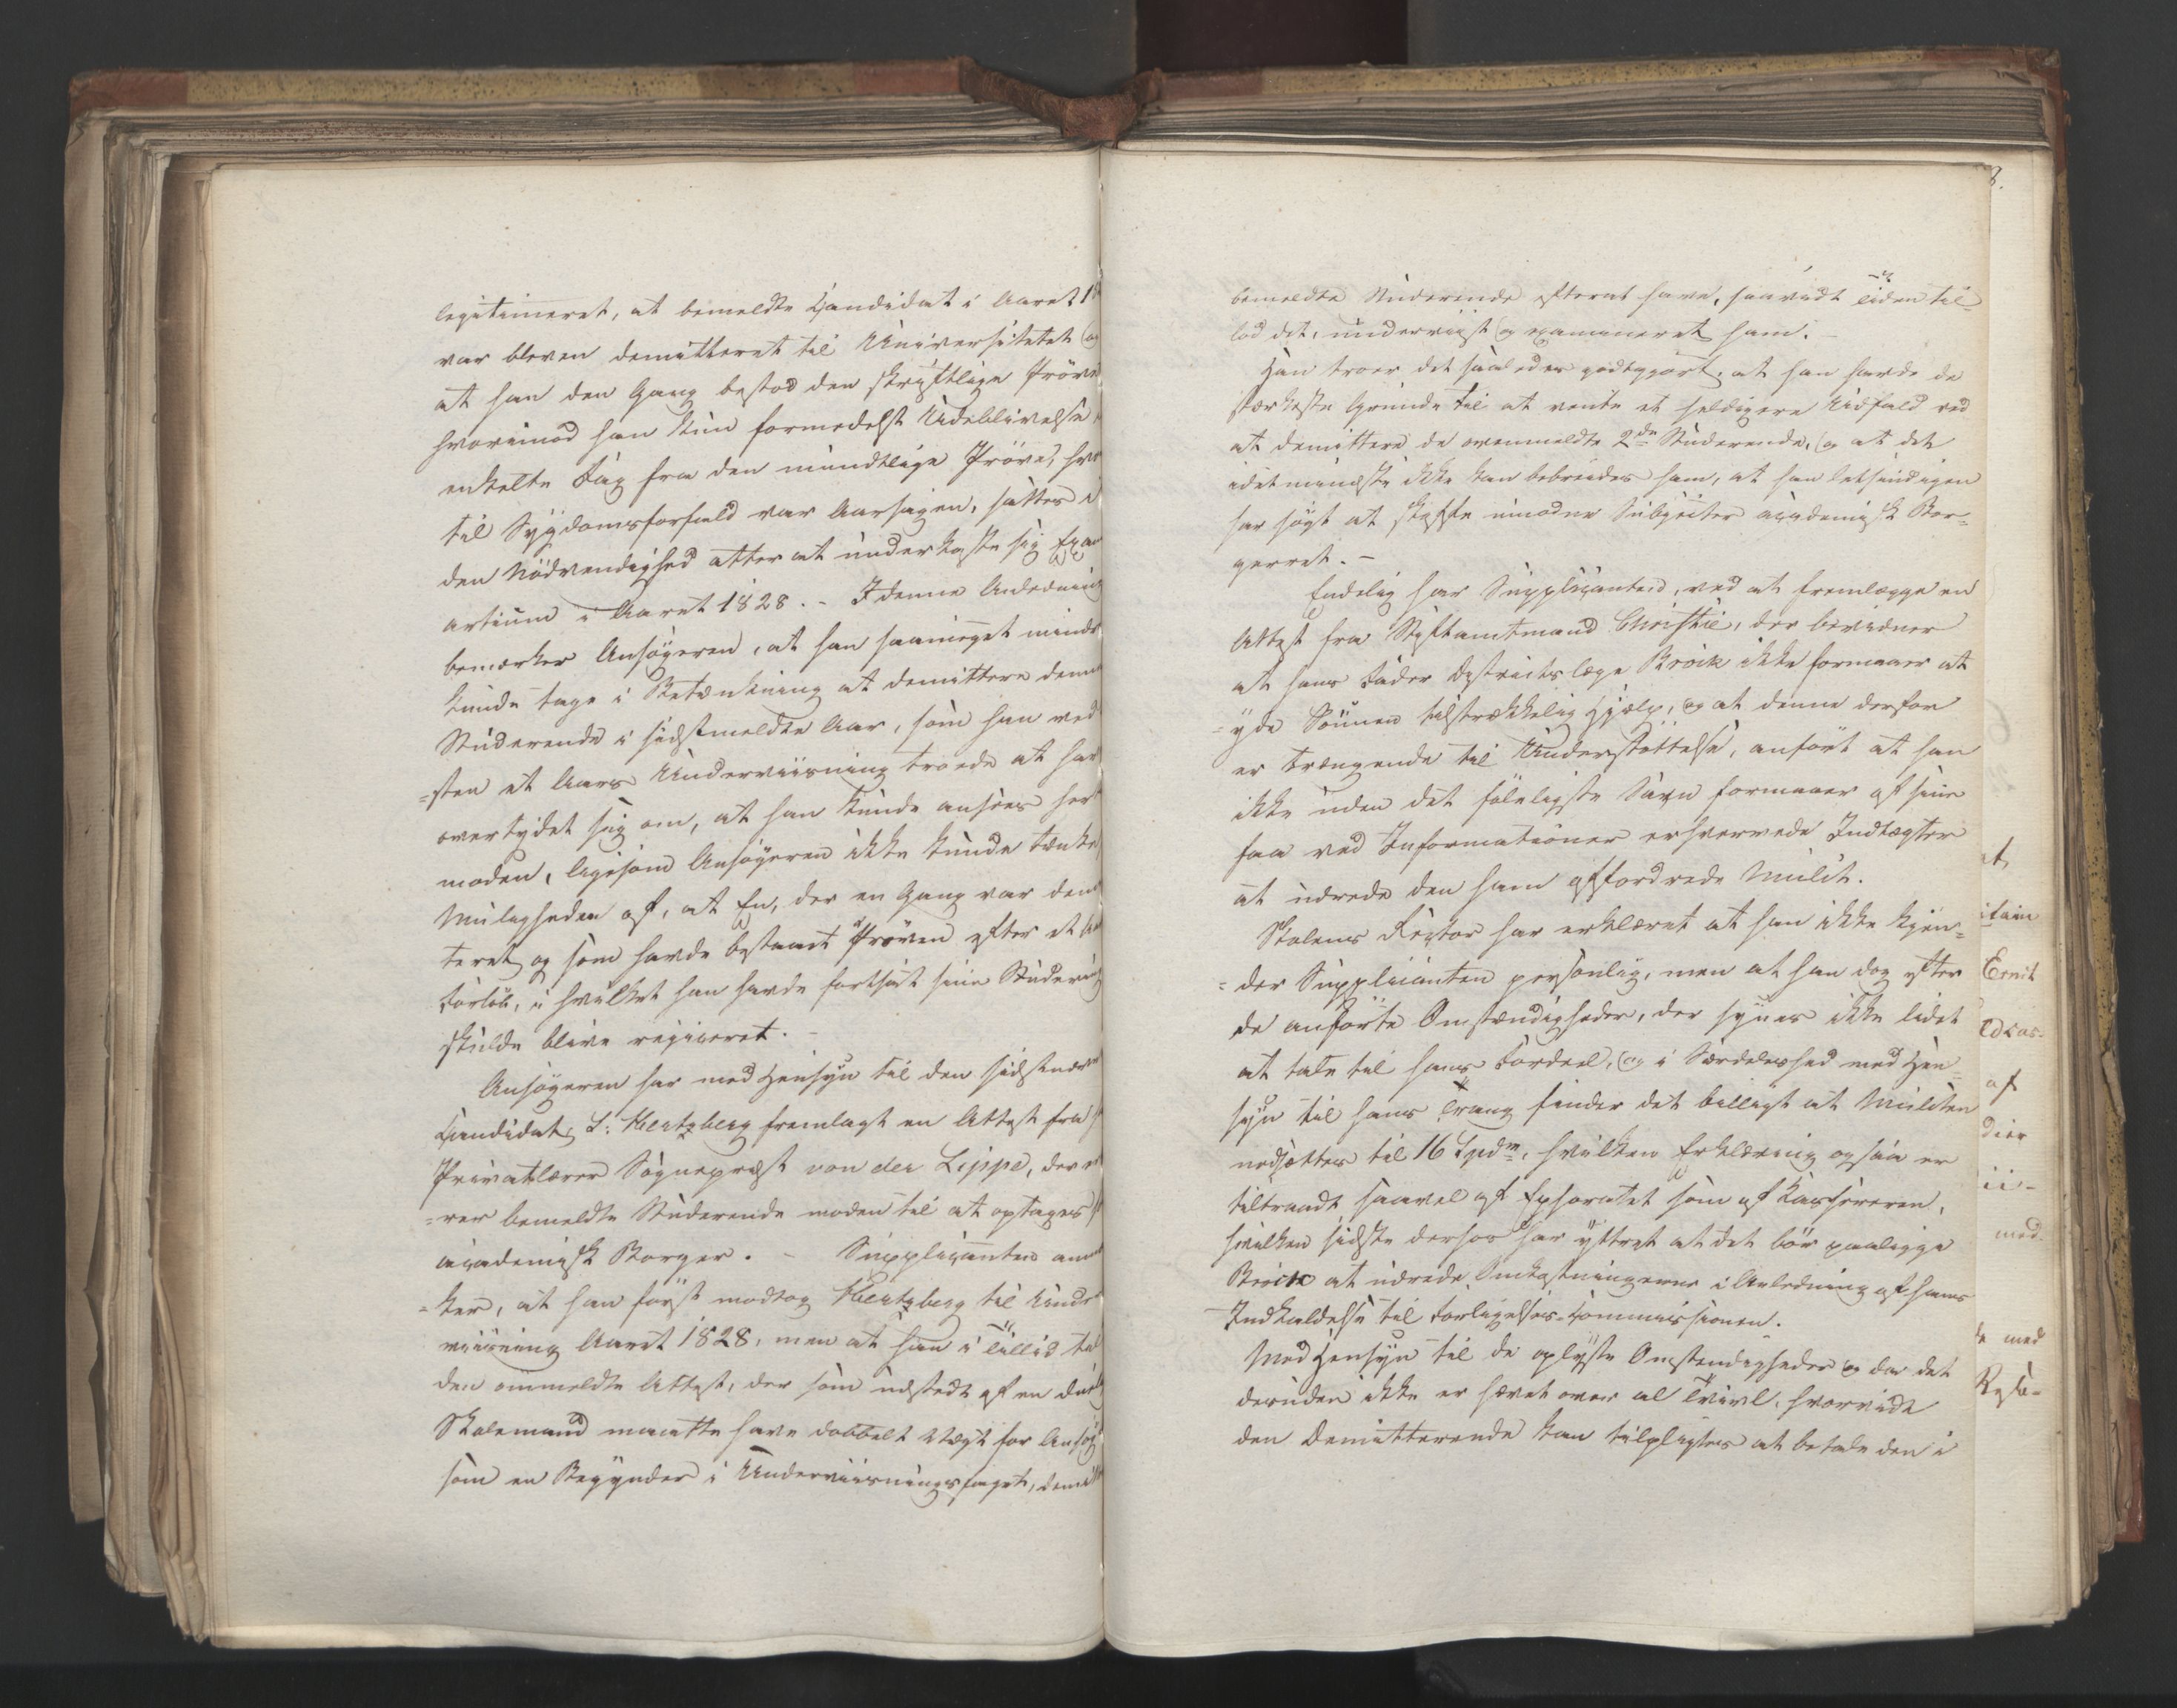 legitimeret, at bemeldte Candidat i Aaret 1
var bleven demitteret til Universitetet og
at han den Gang bestod den skriftlige Prøve
hvorimod han kun formedelst Udeblivelse
enkelte Dag fra den mundtlige Prøve,
til Sygdomsforfald var Aarsagen, sattes i
den Nødvendighed atter at underkaste sig Exam
artium i Aaret 1828. - I denne Anledning
bemærker Ansøgeren, at han saameget mindre
kunde tage i Betænkning at demittere denne
Studerende i sidstmeldte Aar, som han ved
=sten et Aars Underviisning troede at have
overtydet sig om, at han kunde ansees her
moden, ligesom Ansøgeren ikke kunde tænke
Muligheden af, at En, der en Gang var demit
teret og som havde bestaaet Prøven efter et Aars
Forløb, i hvilket han havde fortsat sine Studering
skulde blive rejiceret. -
Ansøgeren har med Hensyn til den sidstnævn
Candidat, L: Hertzberg fremlagt en Attest fra
Privatlærer Sognepræst von der Lippe, der er
=rer bemeldte Studerende moden til at optages
academisk Borger. - Supplicanten anm
=ker, at han først modtog Hertzberg til Under
viisning Aaret 1828, men at han i Tillid til
den ommeldte Attest, der som udstedt af en duelig
Skolemand maatte have dobbelt Vægt for Ansøg
som en Begynder i Underviisningsfaget, demit
bemeldte Studerende efterat have, saavidt Tiden til-
lod det, underviist og examineret ham. -
Han troer det saaledes godtgjort, at han havde de
stærkeste Grunde til at vente et heldigere Udfald ved
at demittere de ovenmeldte 2de Studerende, og at det
idetmindste ikke kan bebreides ham, at han letsindigen
har søgt at skaffe umodne Subjecter academisk Bor-
gerret. -
Endelig har Supplicanten, ved at fremlægge en
Attest fra Stiftamtmand Christie, der bevidner
at hans Fader Districtslæge Brock ikke formaaer at
=yde Sønnen tilstrækkelig Hjælp, og at denne derfor
er trængende til Understøttelse, anført at han
ikke uden det føleligste Savn formaaer af sine
faa ved Informationer erhvervede Indtægter
at udrede den ham affordrede Mulct.
Skolens Rector har erklæret at han ikke kjen-
=der Supplicanten personlig, men at han dog efter
de anførte Omstændigheder, der synes ikke lidet
at tale til hans Fordeel, og i Særdeleshed med Hen-
syn til hans Trang finder det billigt at Mulcten
nedsættes til 16 Spdm, hvilken Erklæring ogsaa er
tiltraadt saavel af Ephoratet som af Kassereren,
hvilken sidste derhos har yttret at det bør paaligge
Brock at udrede Omkostningerne i Anledning af hans
Indkaldelse til Forligelses-Commissionen.
Med Hensyn til de oplyste Omstændigheder og da det
desuden ikke er hævet over al Tvivl, hvorvidt
den Demitterende kan tilpligtes at betale den i
8.
at
af
med